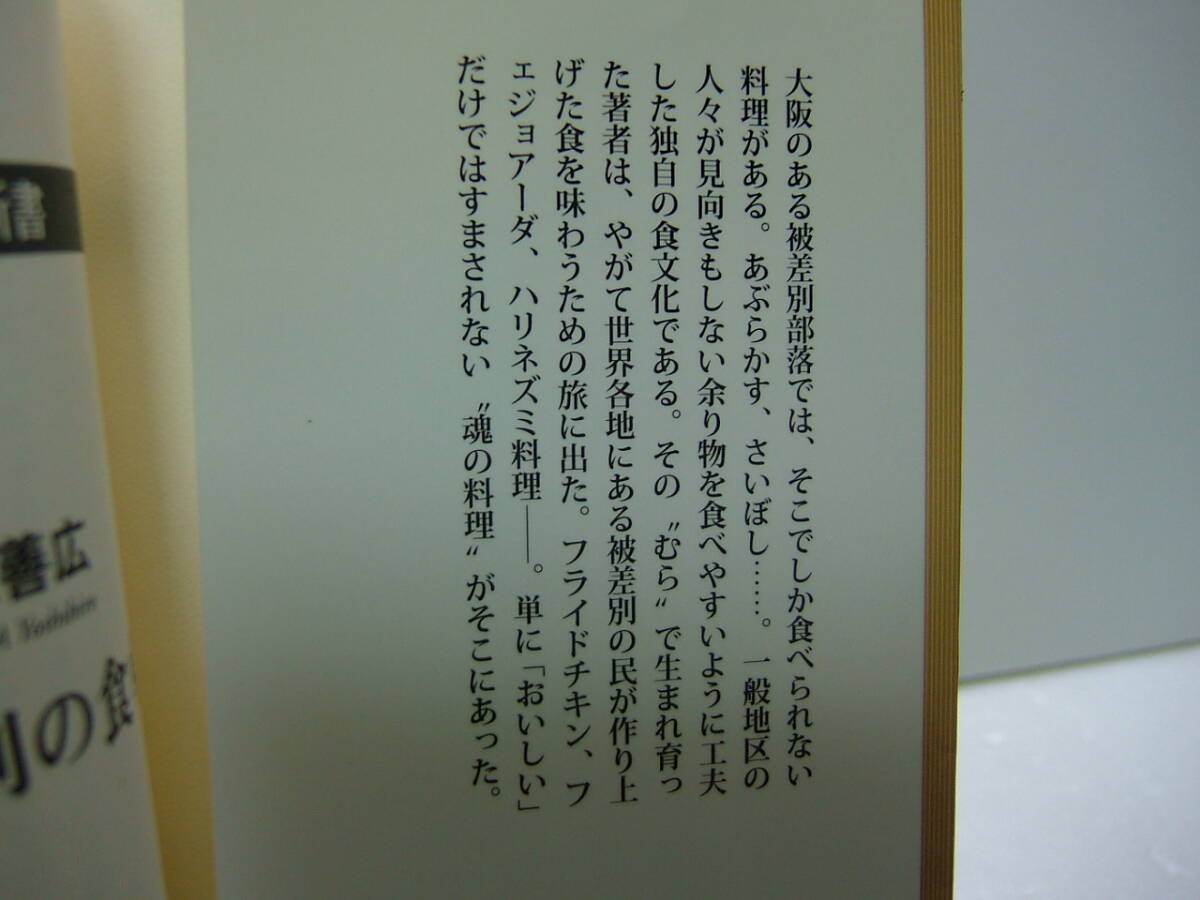 大阪のある被差別部落では、そこでしか食べられない
料理がある。あぶらかす、さいぼし……。一般地区の
人々が見向きもしない余り物を食べやすいように工夫
した独自の食文化である。その〝むら〟で生まれ育っ
た著者は、やがて世界各地にある被差別の民が作り上
げた食を味わうための旅に出た。フライドチキン、フ
ェジョアーダ、ハリネズミ料理――。単に「おいしい」
だけではすまされない〝魂の料理〟がそこにあった。
書
善広
Yoshihiro
の食